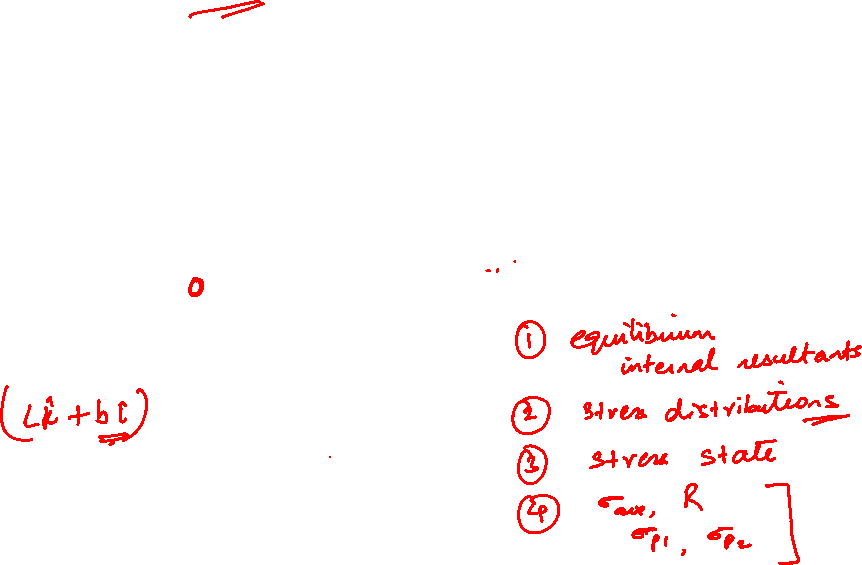 0
① equilibrium
internal resultants
(Lk̂ + bî)
② stress distributions
③ stress state
④ σave, R
σp1, σp2